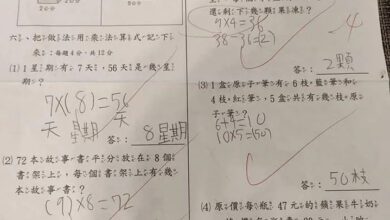 六、把做法用乘法算式記下
來：每題4分，共12分
(1) 1星期有7天，56天是幾星
期？
7×(8)=56
天 星期 天
答：8星期
(2) 72本故事書平分放在8個
書架上，每個書架上有幾
本故事書？
(9)×8=72
還剩下幾顆果凍？
9×4=36
38-36=(2)
-4
答：2顆
(3) 1盒原子筆有6枝藍筆和
4枝紅筆，5盒共有幾枝原
子筆？
6+4=10
10×5=(50)
答：50枝
(4) 原價每瓶47元的蘋果牛奶